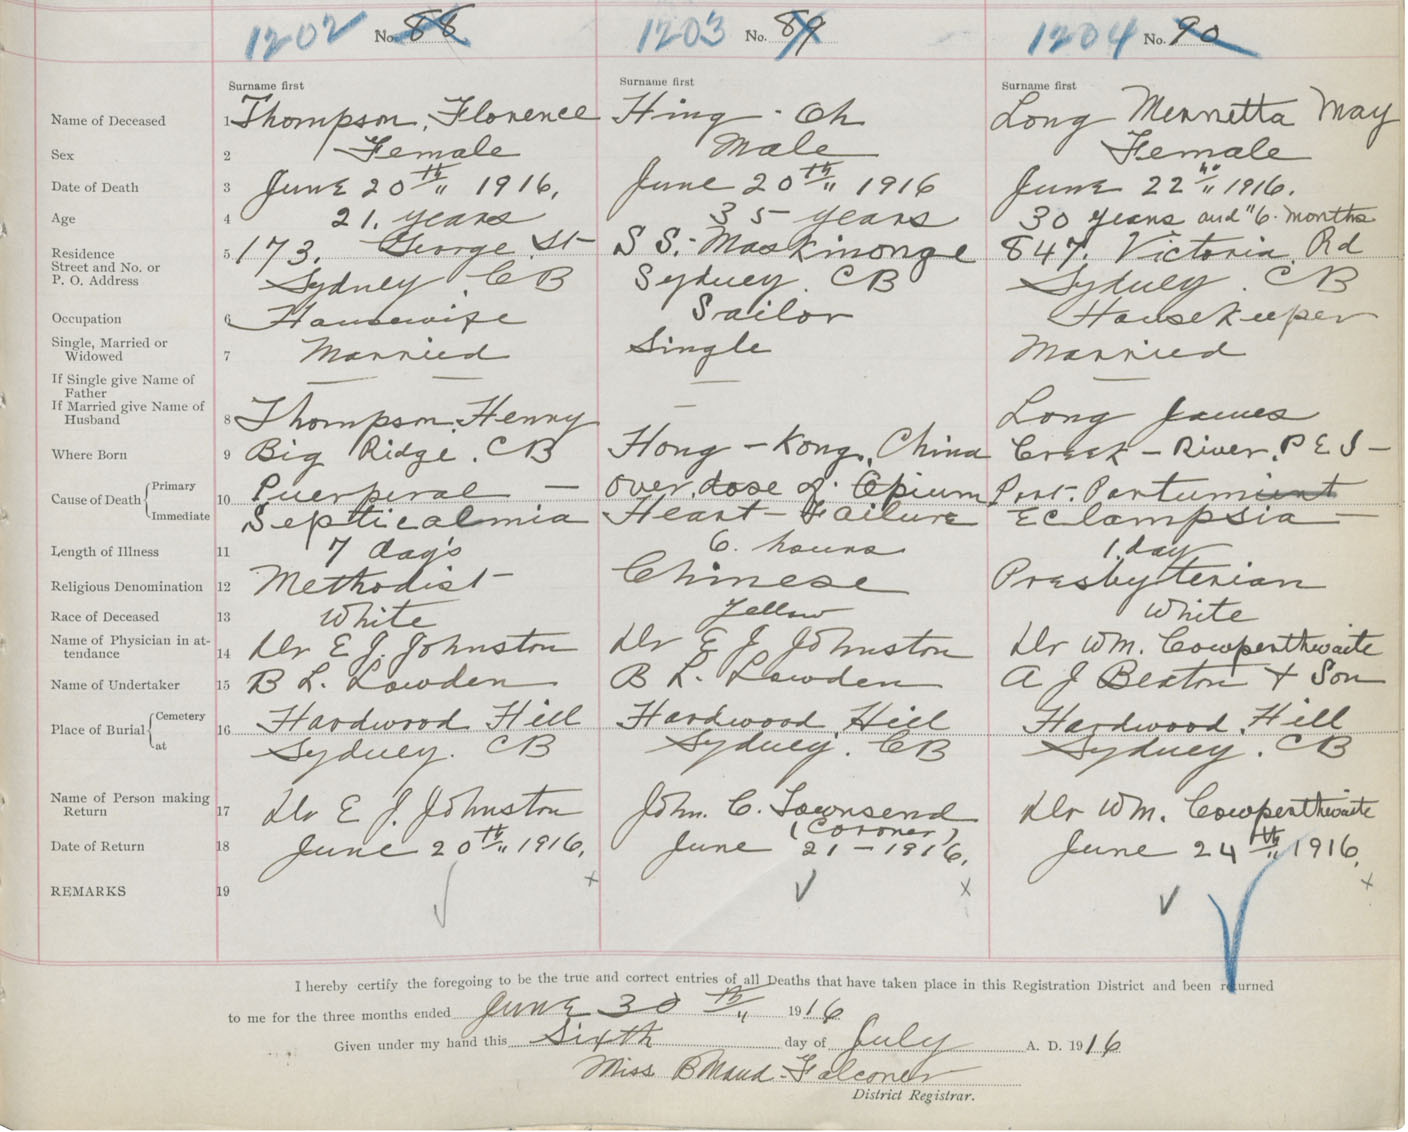 1202 No. 88 1203 No. 89 1204 No. 90
Surname first Surname first Surname first
Name of Deceased 1 Thompson, Florence Hing - Oh Long Merretta May
Sex 2 Female Male Female
Date of Death 3 June 20th 1916. June 20th 1916 June 22nd 1916.
Age 4 21. years 35 years 30 years and 6. months
Residence 5 173. George St S S. Maskinonge 847. Victoria Rd
Street and No. or
P. O. Address Sydney. CB Sydney. CB Sydney. CB
Occupation 6 Housewife Sailor Housekeeper
Single, Married or
Widowed 7 Married Single Married
If Single give Name of — — — —
Father
If Married give Name of —
Husband 8 Thompson. Henry Long James
Where Born 9 Big Ridge. CB Hong - Kong, China River. P E I -
Cause of Death Primary 10 Puerperal — over dose of Opium Post. Partum
Immediate Septicaemia Heart - Failure Eclampsia —
Length of Illness 11 7 day's 6. hours 1. day
Religious Denomination 12 Methodist Chinese Presbyterian
Race of Deceased 13 White Yellow White
Name of Physician in at-
tendance 14 Dr E J. Johnston Dr E J Johnston Dr Wm. Cowperthwaite
Name of Undertaker 15 B L. Lowden B L. Lowden A J Beaton + Son
Place of Burial Cemetery 16 Hardwood Hill Hardwood Hill Hardwood. Hill
at Sydney. CB Sydney. CB Sydney. CB
Name of Person making
Return 17 Dr E J. Johnston John. C. Townsend Dr Wm. Cowperthwaite
(Coroner)
Date of Return 18 June 20th 1916. June 21 - 1916. June 24th 1916.
REMARKS 19
I hereby certify the foregoing to be the true and correct entries of all Deaths that have taken place in this Registration District and been returned
to me for the three months ended June 30th 1916
Given under my hand this Sixth day of July A. D. 1916
Miss B Maud. Falconer
District Registrar.